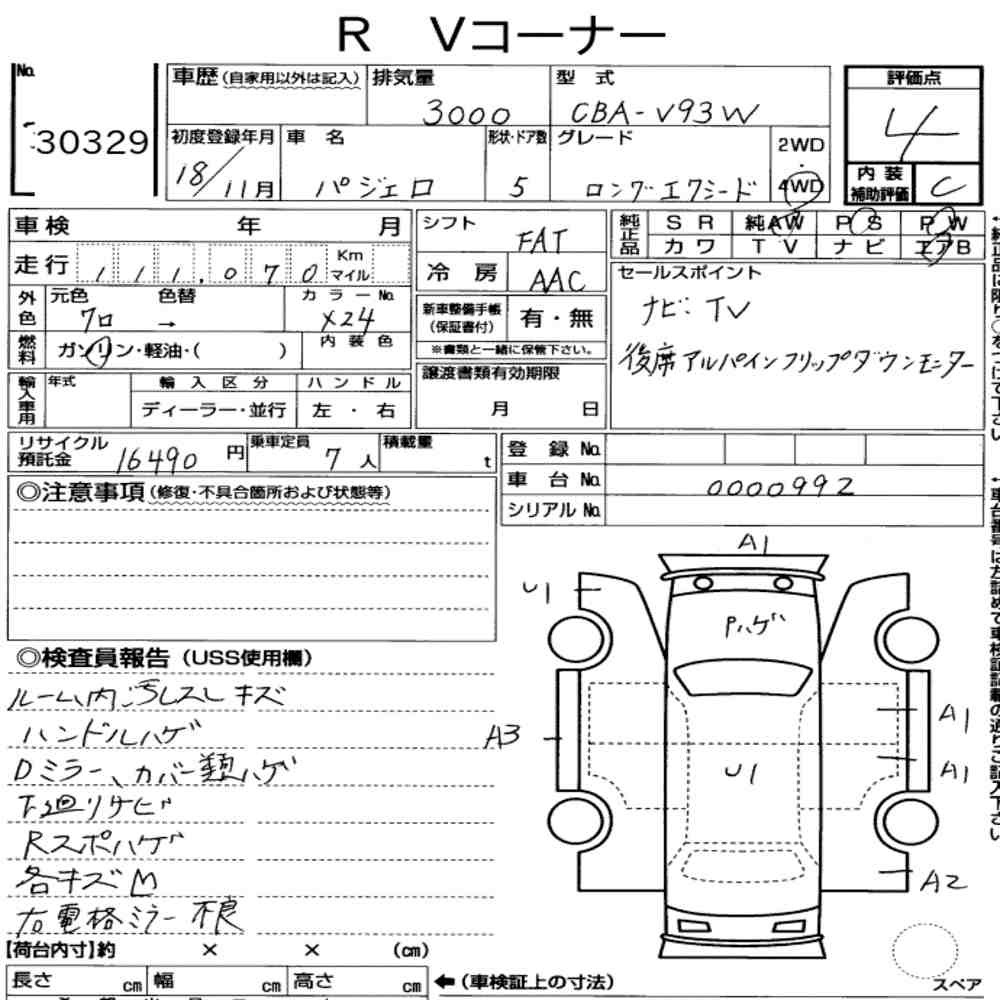 R Vコーナー
No.
30329
車歴 (自家用以外は記入)
排気量
3000
型 式
CBA-V93W
評価点
4
初度登録年月
18/11月
車 名
パジェロ
形状・ドア数
5
グレード
ロングエクシード
2WD
・
4WD
内 装
補助評価
C
車検 年 月
シフト
FAT
純正品
S R 純AW P S P W
カワ T V ナビ エアB
走行 111,070 Km マイル
冷 房
AAC
セールスポイント
ナビ:TV
後席アルパインフリップダウンモニター
外色
元色 色替
クロ →
カラーNo.
X24
新車整備手帳
(保証書付)
有・無
※書類と一緒に保管下さい。
燃料
ガソリン・軽油・( )
内 装 色
輸入車用
年式
輸 入 区 分
ディーラー・並行
ハ ン ド ル
左 ・ 右
譲渡書類有効期限
月 日
リサイクル
預託金
16490 円
乗車定員
7 人
積載量
t
登 録 No.
車 台 No.
0000992
シリアル No.
◎注意事項 (修復・不具合箇所および状態等)
◎検査員報告 (USS使用欄)
ルーム内汚しスレキズ
ハンドルハゲ
Dミラー、カバー類ハゲ
下廻りサビ
Rスポハゲ
各キズM
右電格ミラー不良
A1
U1
Pハゲ
A3
U1
A1
A1
A2
スペア
【荷台内寸】約 × × (cm)
長さ cm 幅 cm 高さ cm
←(車検証上の寸法)